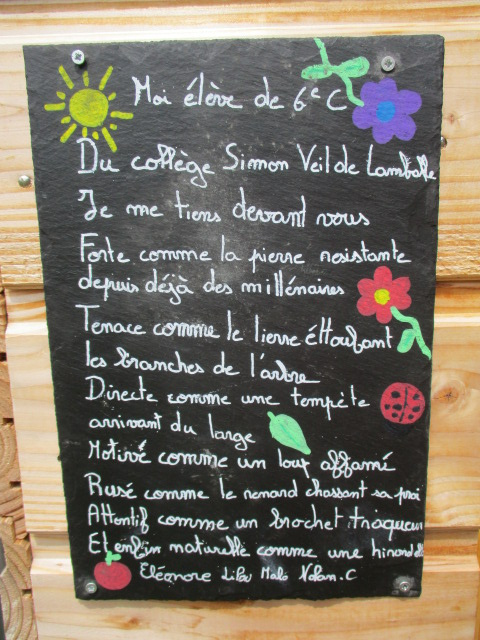 Moi élève de 6e C
Du collège Simmon Veil de Lamballe
Je me tiens devant vous
Forte comme la pierre résistante
depuis déjà des millénaires
Tenace comme le lierre éttoufant
les branches de l'arbre
Directe comme une tempête
arrivant du large
Motivé comme un loup affamé
Rusé comme le renard chassant sa proi
Attentif comme un brochet traqueur
Et enfin maturelle comme une hirondelle
Eléonore Lilou Malo Nolan.C